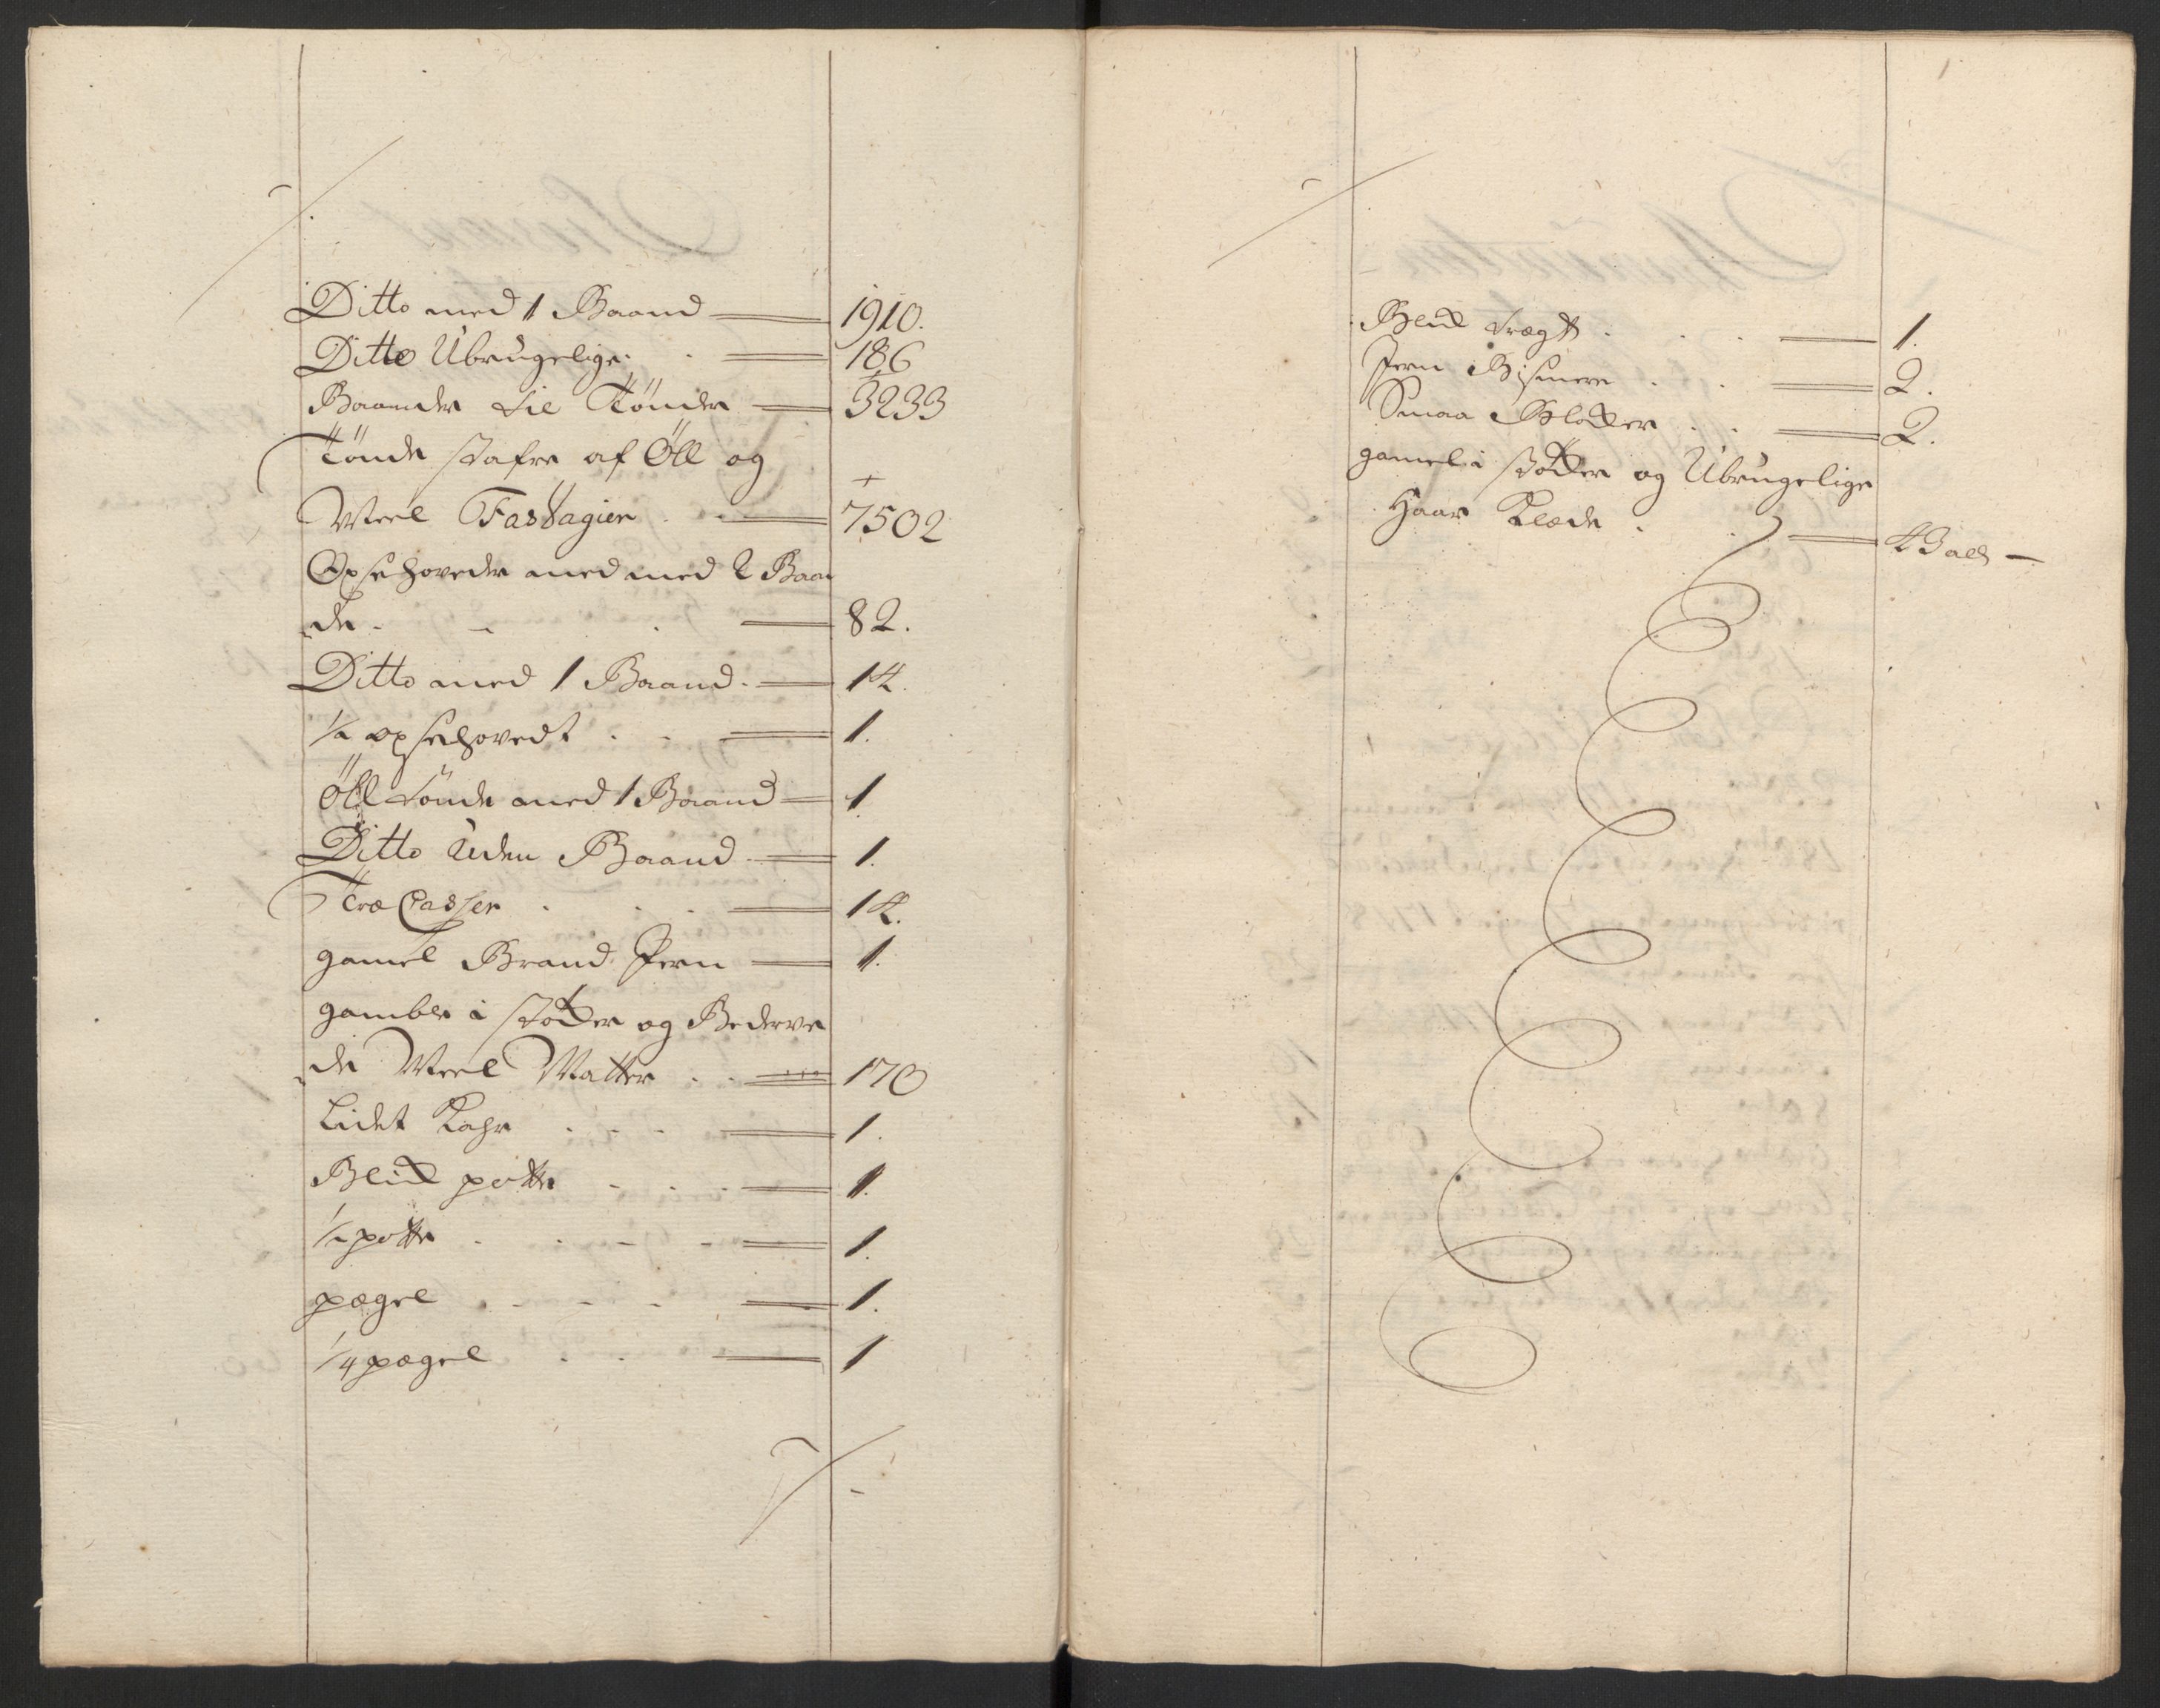 Ditto med 1 Baand 1910.
Ditto Ubrugelige 186
Baander til Tönder 3233
Tönde stafve af Öll og
Meel Fastagier 7502
Oxsehoveder med med 2 Baan
de 82.
Ditto med 1 Baand 14.
1/2 oxsehovedt 1.
Öll tönde med 1 Baand 1.
Ditto Uden Baand 1.
Træ Casser 14.
gamel Brand Jern 1.
gamble i støcker og Bederve
de Meel Matter 170
Lidet Kahr 1.
Blick potte 1.
1/2 potte 1.
pægel 1.
1/4 pægel 1
Blick tregt 1.
Jern Bismere 2.
Smaa Klocker 2.
gamel i støcker og Ubrugelige
Haar Klæde 43 all